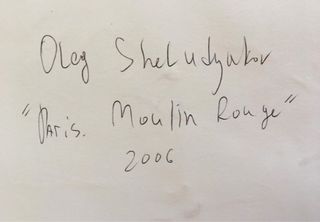 Oleg Sheludyakov
"Paris. Moulin Rouge"
2006